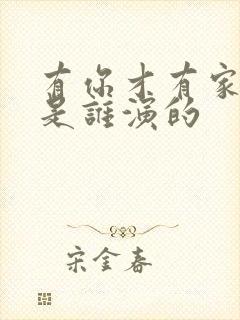 有你才有家
是誰演的
宋金春